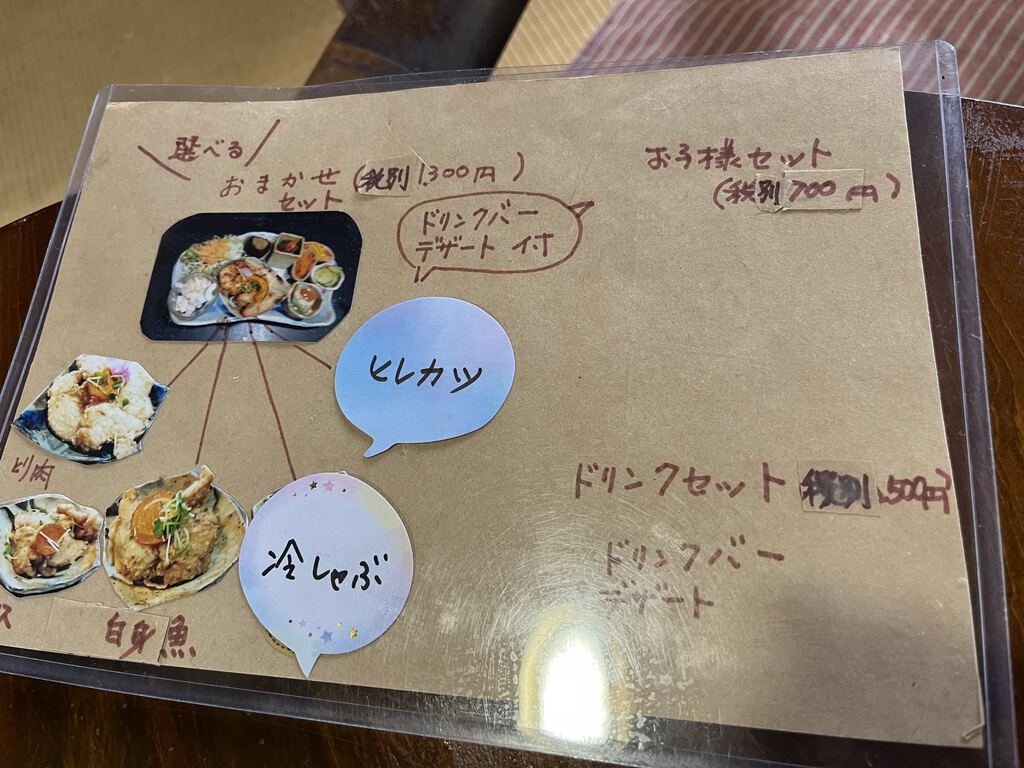 選べる
おまかせ (税別 1,300円)
セット
ドリンクバー
デザート 付
お子様セット
(税別 700円)
ヒレカツ
とり肉
冷しゃぶ
ス
白身魚
ドリンクセット 税別 500円
ドリンクバー
デザート